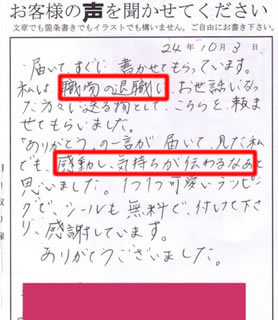 お客様の声を聞かせてください
文章でも箇条書きでもイラストでも構いません。ご自由にお書き下さい。
24年10月3日
届いてすぐに書かせてもらっています。
私は職場の退職し、お世話になっ
た方々に送る物として、こちらを頼ま
せてもらいました。
「ありがとう。」の一言が届いて、見た私
でも、感動し、気持ちが伝わるなあと
思いました。1つ1つ可愛いラッピン
グで、シールも無料で、付けて下さ
り、感謝しています。
ありがとうございました。